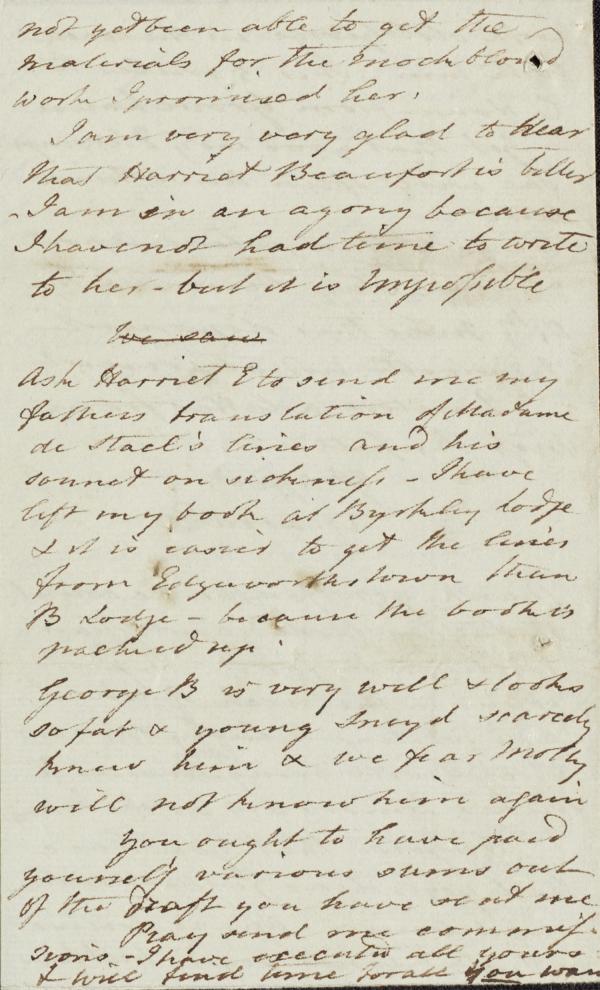 not yet been able to get the
materials for the mock blond
work I promised her.
I am very very glad to hear
that Harriet Beaufort is better
- I am in an agony because
I have not had time to write
to her - but it is Impossible
We saw
Ask Harriet E to send me my
fathers translation of Madame
de Stael's lines and his
sonnet on sickness - I have
left my book at Byrkley lodge
& it is easier to get the lines
from Edgeworthstown than
B Lodge - because the book is
packed up.
George B is very well & looks
so fat & young Sneyd scarcely
knew him & we fear Molly
will not know him again
You ought to have paid
yourself various sums out
of the draft you have sent me
Pray send me commis-
sions - I have executed all yours
& will find time for all you want